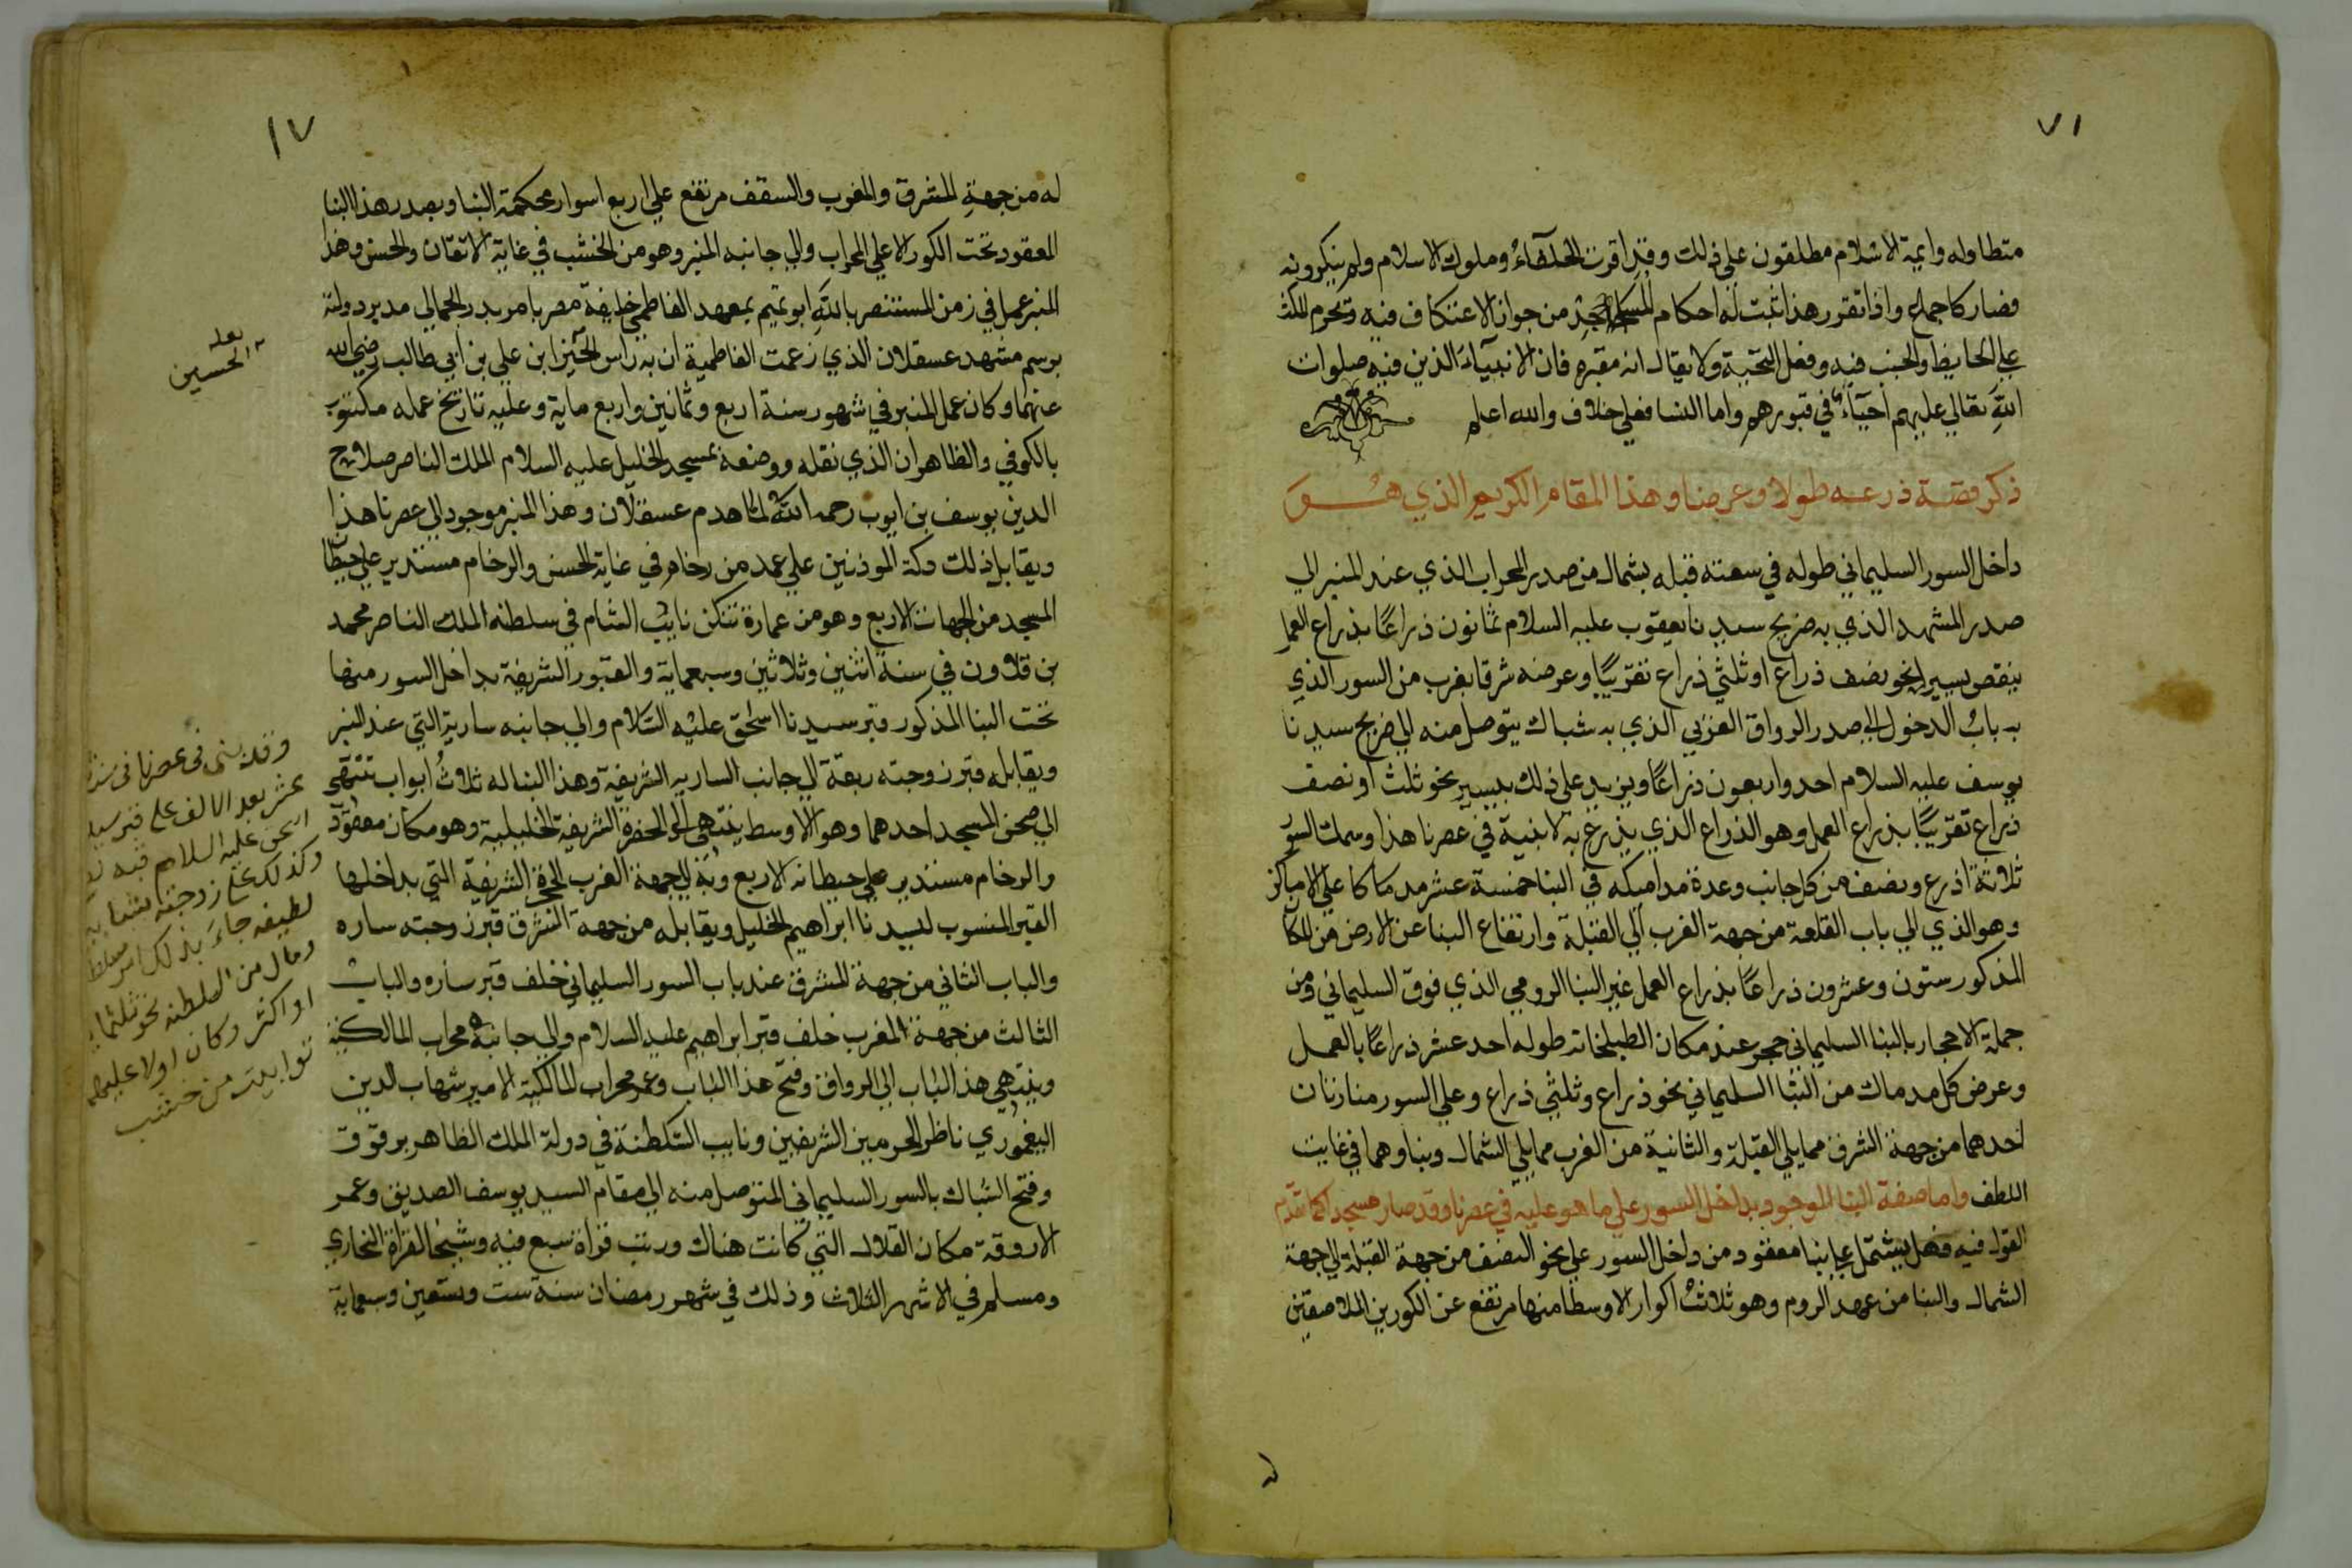 ٧١
متطاوله وايمة الاسلام مطلقون علي ذلك وقد اقرت الخلفاءُ وملوك الاسلام ولم ينكرونه
فصار كاجماع واذا تقرر هذا ثبت له احكام المسجد من جواز الاعتكاف فيه وتحرم المكث
علي الحايض والجنب فيه وفعل التحية ولا يقال انه مقبره فان الانبيآءَ الذين فيه صلوات
اللهِ تعالي عليهم احيآءٌ في قبورهم واما النسا فعلي خلاف والله اعلم
ذكر قصة ذرعه طولا وعرضا وهذا المقام الكريم الذي هو
داخل السور السليماني طوله في سعته قبله بشمال من صدر المحراب الذي عند المنبر الي
صدر المشهد الذي به ضريح سيدنا يعقوب عليه السلام ثمانون ذراعًا بذراع العمل
ينقص يسيرا نحو نصف ذراع او ثلثي ذراع تقريبًا وعرضه شرقا بغرب من السور الذي
به بابُ الدخول الي صدر الرواق الغربي الذي به شباك يتوصل منه الي ضريح سيدنا
يوسف عليه السلام احد واربعون ذراعًا ويزيد علي ذلك بيسير نحو ثلث او نصف
ذراع تقريبًا بذراع العمل وهو الذراع الذي يذرع به لابنية في عصرنا هذا وسمك السور
ثلاثة اذرع ونصف من كل جانب وعدة مداميكه في البنا خمسة عشر مدماكا علي الاماكن
وهو الذي الي باب القلعة من جهة الغرب الي القبلة وارتفاع البنا عن الارض من المكان
المذكور ستون وعشرون ذراعًا بذراع العمل غير البنا الرومي الذي فوق السليماني ومن
جملة الاحجار بالبنا السليماني حجر عند مكان الطبلخانه طوله احد عشر ذراعًا بالعمل
وعرض كل مدماك من البنا السليماني نحو ذراع وثلثي ذراع وعلي السور منارتان
احدهما من جهة الشرق مما يلي القبلة والثانية من الغرب مما يلي الشمال وبناوهما في غاية
اللطف واما صفة البنا الموجود بداخل السور علي ما هو عليه في عصرنا وقد صار مسجدا كما تقدم
القول فيه فهل يشتمل علي بنا معقود من داخل السور علي نحو النصف من جهة القبلة الي جهة
الشمال والبنا من عهد الروم وهو ثلاثُ اكوار الاوسط منها مرتفع عن الكورين الملاصقين
١٧
له من جهةِ المشرق والمغرب والسقف مرتفع علي اربع اسوار محكمة البنا وبصدر هذا البنا
المعقود تحت الكور الاعلي المحراب والي جانبه المنبر وهو من الخشب في غاية الاتقان والحسن وهذا
المنبر عمل في زمن المستنصر باللهِ ابو تميم بمعهد الفاطمي خليفة مصر بامر بدر الجمالي مدبر دولته
برسم مشهد عسقلان الذي زعمت الفاطمية ان به راس الحسين ابن علي بن ابي طالب رضي الله
عنهما وكان عمل المنبر في شهور سنة اربع وثمانين واربع ماية وعليه تاريخ عمله مكتوب
بالكوفي والظاهر ان الذي نقله ووضعه بمسجد الخليل عليه السلام الملك الناصر صلاح
الدين يوسف بن ايوب رحمه الله لما هدم عسقلان وهذا المنبر موجود الي عصرنا هذا
ويقابل ذلك دكة الموذنين علي عمد من رخام في غاية الحسن والرخام مستدير علي حيطان
المسجد من الجهات الاربع وهو من عمارة تنكز نايب الشام في سلطنه الملك الناصر محمد
بن قلاون في سنة اثنين وثلاثين وسبعماية والقبور الشريفة بداخل السور منها
تحت البنا المذكور قبر سيدنا اسحق عليه السلام والي جانبه سارية التي عند المنبر
ويقابله قبر زوجته ربقة الي جانب الساريه الشريفة وهذا البنا له ثلاثُ ابواب تنتهي
الي صحن المسجد احدهما وهو الاوسط ينتهي الي الحضرة الشريفة الخليلية وهو مكان معقود
والرخام مستدير علي حيطانه الاربع وبه الي جهة الغرب الحجرة الشريفة التي بداخلها
القبر المنسوب لسيدنا ابراهيم الخليل ويقابله من جهة الشرق قبر زوجته ساره
والباب الثاني من جهة المشرق عند باب السور السليماني خلف قبر ساره والباب
الثالث من جهة المغرب خلف قبر ابراهيم عليه السلام والي جانبه محراب المالكية
وينتهي هذا الباب الي الرواق وفتح هذا الباب وعمر محراب المالكية الامير شهاب الدين
اليغموري ناظر الحرمين الشريفين ونايب السلطنة في دولة الملك الظاهر برقوق
وفتح الشباك بالسور السليماني المتوصل منه الي مقام السيد يوسف الصديق وعمر
الاروقة مكان القلال التي كانت هناك ورتب قراة سبع فيه وشيخا لقراة البخاري
ومسلم في الاشهر الثلاث وذلك في شهور رمضان سنة ست وتسعين وسبعماية
الحسين
وقد بنى فى عصرنا فى سنة
عشر بعد الالف على قبر سيدنا
اسحق عليه السلام قبه
وكذلك على زوجته
لطيفه جاءَ بذلك امر سلطانى
ومال من السلطنه نحو ثلثماية
او اكثر وكان اولا عليهما
توابيت من خشب